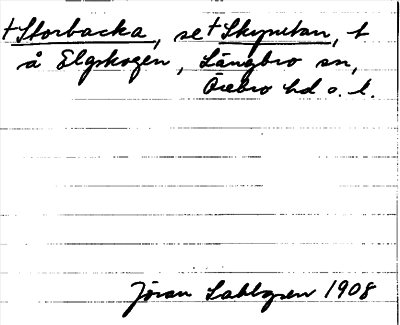 †Storbacka, se †Skymitan, t
å Elgskogen, Längbro sn,
Örebro hd o. l.
Jöran Sahlgren 1908